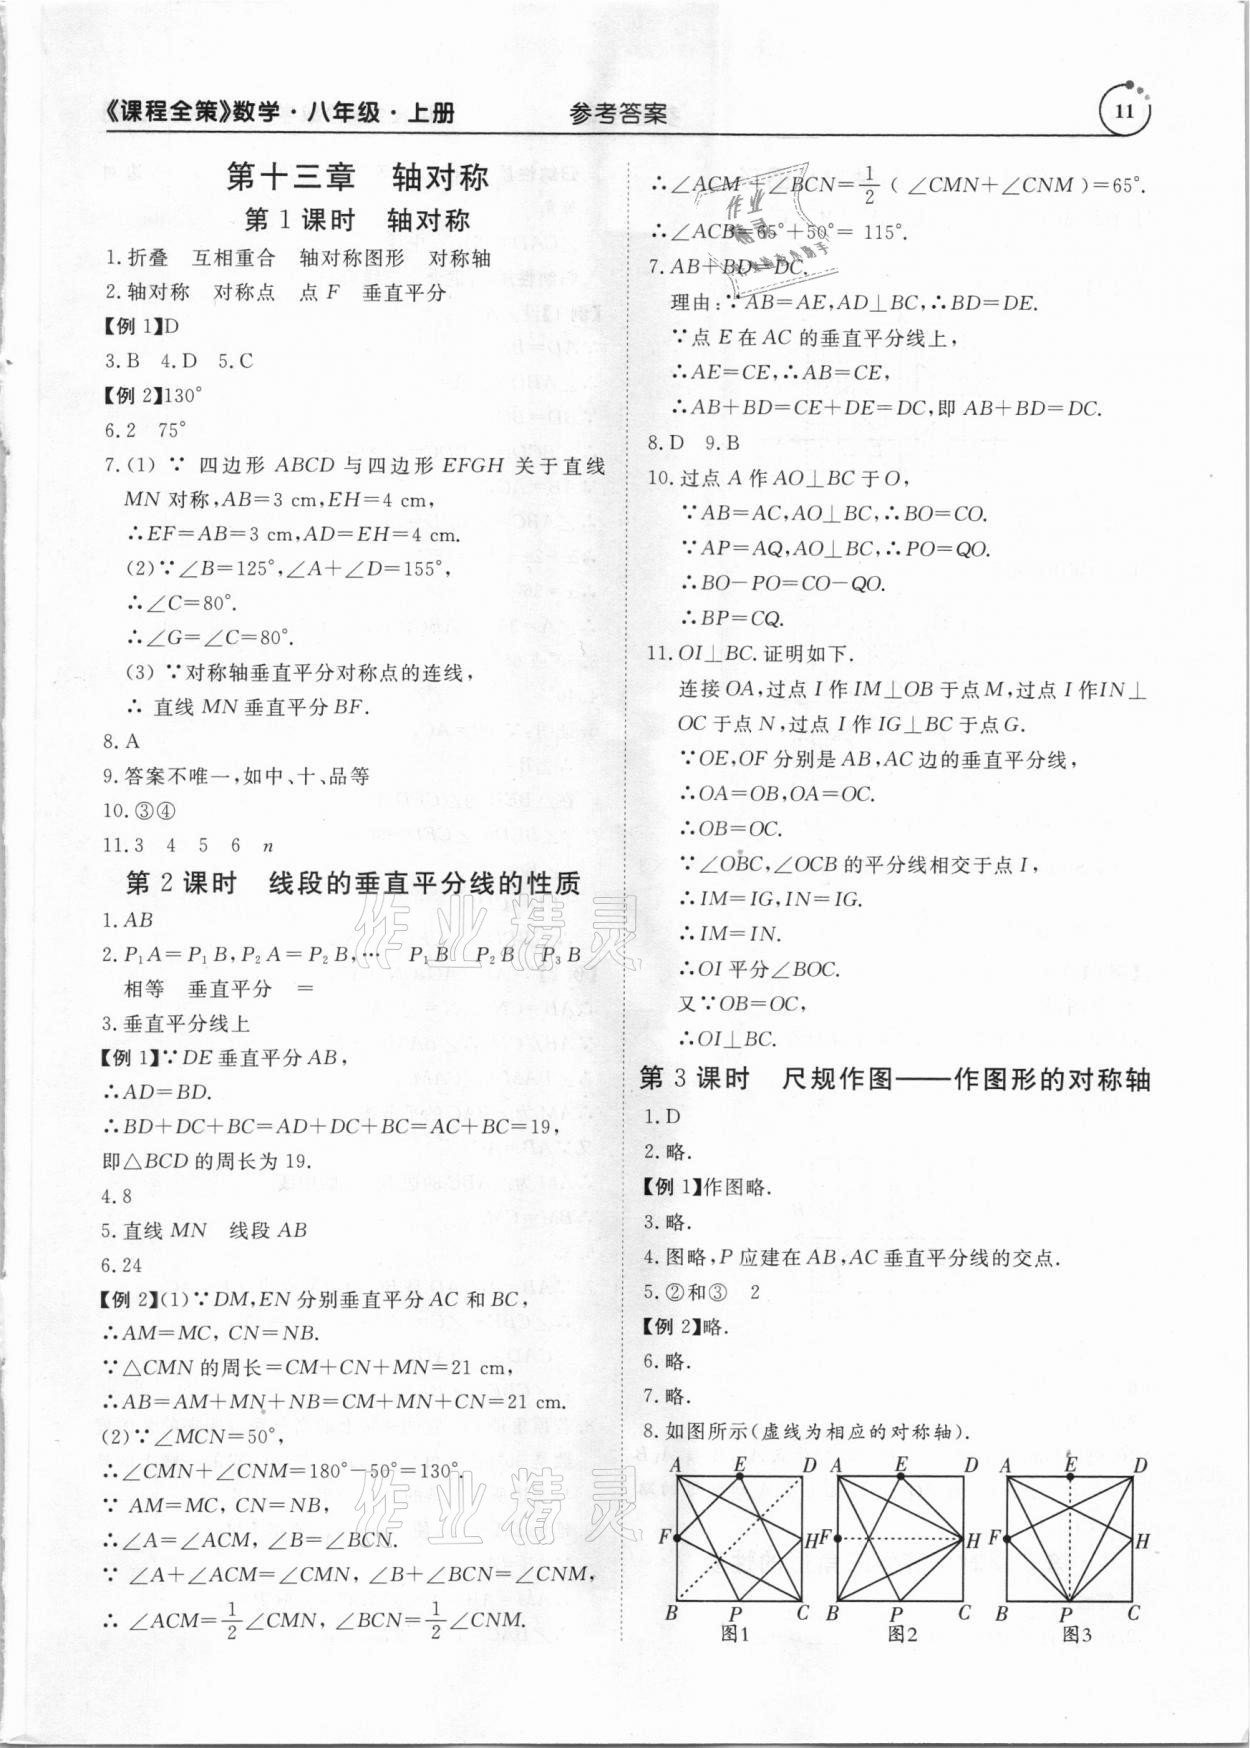 《课程全策》数学·八年级·上册
参考答案
11
第十三章 轴对称
第1课时 轴对称
1.折叠 互相重合 轴对称图形 对称轴
2.轴对称 对称点 点F 垂直平分
【例1】D
3.B 4.D 5.C
【例2】130°
6.2 75°
7.(1)∵四边形ABCD与四边形EFGH关于直线
MN对称,AB=3 cm,EH=4 cm,
∴EF=AB=3 cm,AD=EH=4 cm.
(2)∵∠B=125°,∠A+∠D=155°,
∴∠C=80°.
∴∠G=∠C=80°.
(3)∵对称轴垂直平分对称点的连线,
∴直线MN垂直平分BF.
8.A
9.答案不唯一,如中、十、品等
10.③④
11.3 4 5 6 n
第2课时 线段的垂直平分线的性质
1.AB
2.P₁A=P₁B,P₂A=P₂B,… P₁B P₂B P₃B
相等 垂直平分 =
3.垂直平分线上
【例1】∵DE垂直平分AB,
∴AD=BD.
∴BD+DC+BC=AD+DC+BC=AC+BC=19,
即△BCD的周长为19.
4.8
5.直线MN 线段AB
6.24
【例2】(1)∵DM,EN分别垂直平分AC和BC,
∴AM=MC,CN=NB.
∵△CMN的周长=CM+CN+MN=21 cm,
∴AB=AM+MN+NB=CM+MN+CN=21 cm.
(2)∵∠MCN=50°,
∴∠CMN+∠CNM=180°-50°=130°.
∵AM=MC,CN=NB,
∴∠A=∠ACM,∠B=∠BCN.
∵∠A+∠ACM=∠CMN,∠B+∠BCN=∠CNM,
∴∠ACM=1/2∠CMN,∠BCN=1/2∠CNM.
∴∠ACM+∠BCN=1/2(∠CMN+∠CNM)=65°.
∴∠ACB=65°+50°=115°.
7.AB+BD=DC.
理由:∵AB=AE,AD⊥BC,∴BD=DE.
∵点E在AC的垂直平分线上,
∴AE=CE,∴AB=CE,
∴AB+BD=CE+DE=DC,即AB+BD=DC.
8.D 9.B
10.过点A作AO⊥BC于O,
∵AB=AC,AO⊥BC,∴BO=CO.
∵AP=AQ,AO⊥BC,∴PO=QO.
∴BO-PO=CO-QO.
∴BP=CQ.
11.OI⊥BC.证明如下.
连接OA,过点I作IM⊥OB于点M,过点I作IN⊥
OC于点N,过点I作IG⊥BC于点G.
∵OE,OF分别是AB,AC边的垂直平分线,
∴OA=OB,OA=OC.
∴OB=OC.
∵∠OBC,∠OCB的平分线相交于点I,
∴IM=IG,IN=IG.
∴IM=IN.
∴OI平分∠BOC.
又∵OB=OC,
∴OI⊥BC.
第3课时 尺规作图——作图形的对称轴
1.D
2.略.
【例1】作图略.
3.略.
4.图略,P应建在AB,AC垂直平分线的交点.
5.②和③ 2
【例2】略.
6.略.
7.略.
8.如图所示(虚线为相应的对称轴).
A E D A E D A E D
F H F H F H
B P C B P C B P C
图1 图2 图3
作业精灵
作业精灵